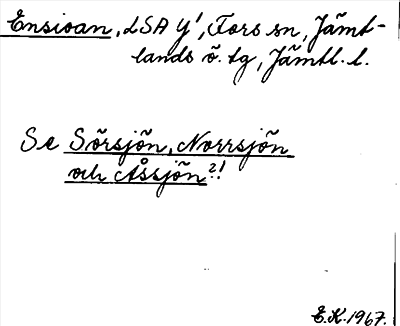 Ensioan, LSA Y', Fors sn, Jämt-
lands ö. tg, Jämtl. l.
Se Sörsjön, Norrsjön
och Åssjön?!
E.K. 1967.